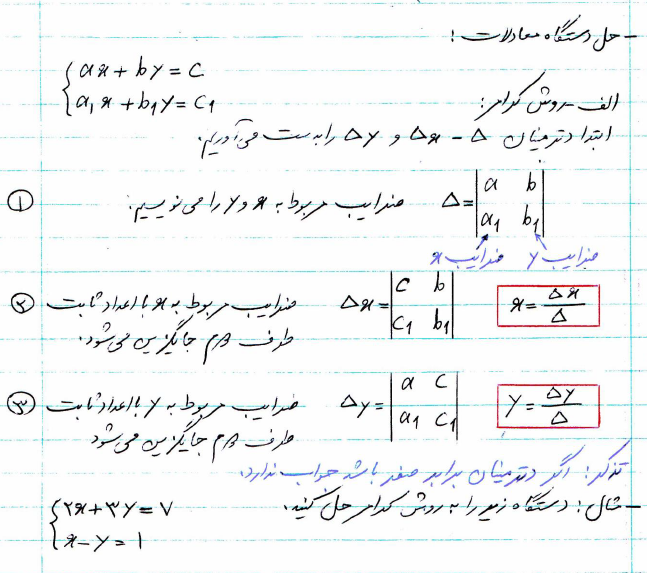 - حل دستگاه معادلات:
{ax + by = c
a₁x + b₁y = c₁
الف - روش کرامر:
ابتدا دترمینان Δ - Δx و Δy را بدست می‌آوریم.
① ضرایب مربوط به x و y را می نویسیم. Δ = |a b|
|a₁ b₁|
ضرایب x ضرایب y
② ضرایب مربوط به x با اعداد ثابت Δx = |c b| x = Δx/Δ
طرف دوم جایگزین می‌شود. |c₁ b₁|
③ ضرایب مربوط به y با اعداد ثابت Δy = |a c| y = Δy/Δ
طرف دوم جایگزین می‌شود |a₁ c₁|
تذکر: اگر دترمینان برابر صفر باشد جواب ندارد.
- مثال: دستگاه زیر را به روش کرامر حل کنید.
{۲x + ۳y = ۷
x - y = ۱